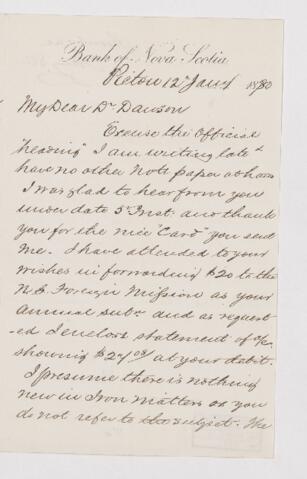 Bank of Nova Scotia
Pictou 12 Jany 1880
My Dear Dr Dawson
Excuse the Official
"heading" I am writing late &
have no other note paper at hand
I was glad to hear from you
under date 5th Inst. and thank
you for the nice "Card" you sent
me. I have attended to your
wishes in forwarding $20 to the
N.S. Foreign Mission as your
annual subn. and as request-
ed I enclose statement of a/c.
showing $27.09 at your debit.
I presume there is nothing
new in Iron matters as you
do not refer to the subject. We